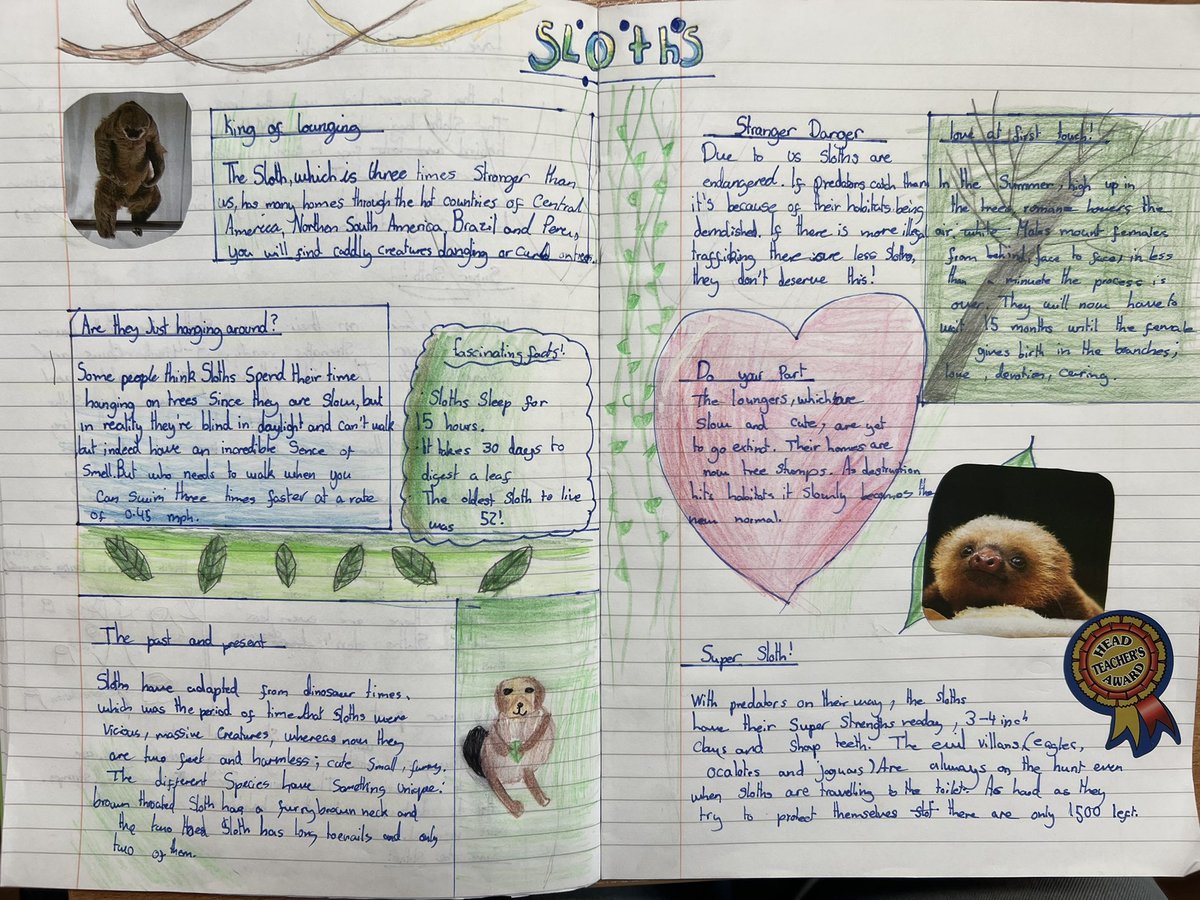 SLOths
King of lounging
The Sloth, which is three times Stronger than
us, has many homes through the hot countries of Central
America, Northen South America, Brazil and Peru,
you will find caddly creatures dangling or on trees.
Are they Just hanging around?
Some people think Sloths Spend their time
hanging on trees Since they are Slow, but
in reality they're blind in daylight and can't walk
but indeed have an incredible Sence of
Smell. But who needs to walk when you
can swim three times faster at a rate
of 0.45 mph.
fascinating facts!
· Sloths Sleep for
15 hours.
· It takes 30 days to
digest a leaf
· The oldest Sloth to live
was 52!
The past and present
Sloths have adapted from dinosaur times.
which was the period of time that Sloths were
vicious, massive creatures, whereas now they
are two feet and harmless; cute small, funny.
The different Species have Something unique:
brown throated Sloth has a furry brown neck and
the two toed Sloth has long toenails and only
two of them.
Stranger Danger
Due to us Sloths are
endangered. If predators catch them
it's because of their habitats being
demolished. If there is more illegal
traffiking there are less Sloths,
they don't deserve this!
love at first touch!
In the Summer, high up in
the trees romance hovers the
air, white Males mount females
from behind, face to face, in less
than a minuete the process is
over. They will now have to
wait 15 months until the female
gives birth in the branches;
love, devotion, caring.
Do your Part
The loungers, which are
Slow and cute, are yet
to go extint. Their homes are
now tree stumps. As destruction
hits habitats it slowly becomes the
new normal.
Super Sloth!
With predators on their way, the sloths
have their Super Strengths ready, 3-4 inch
claws and sharp teeth. The evil villans, (eagles,
ocalotes and joguars) Are allways on the hunt even
when sloths are travelling to the toilets. As hard as they
try to protect themselves there are only 1500 left.
HEAD
TEACHER'S
AWARD